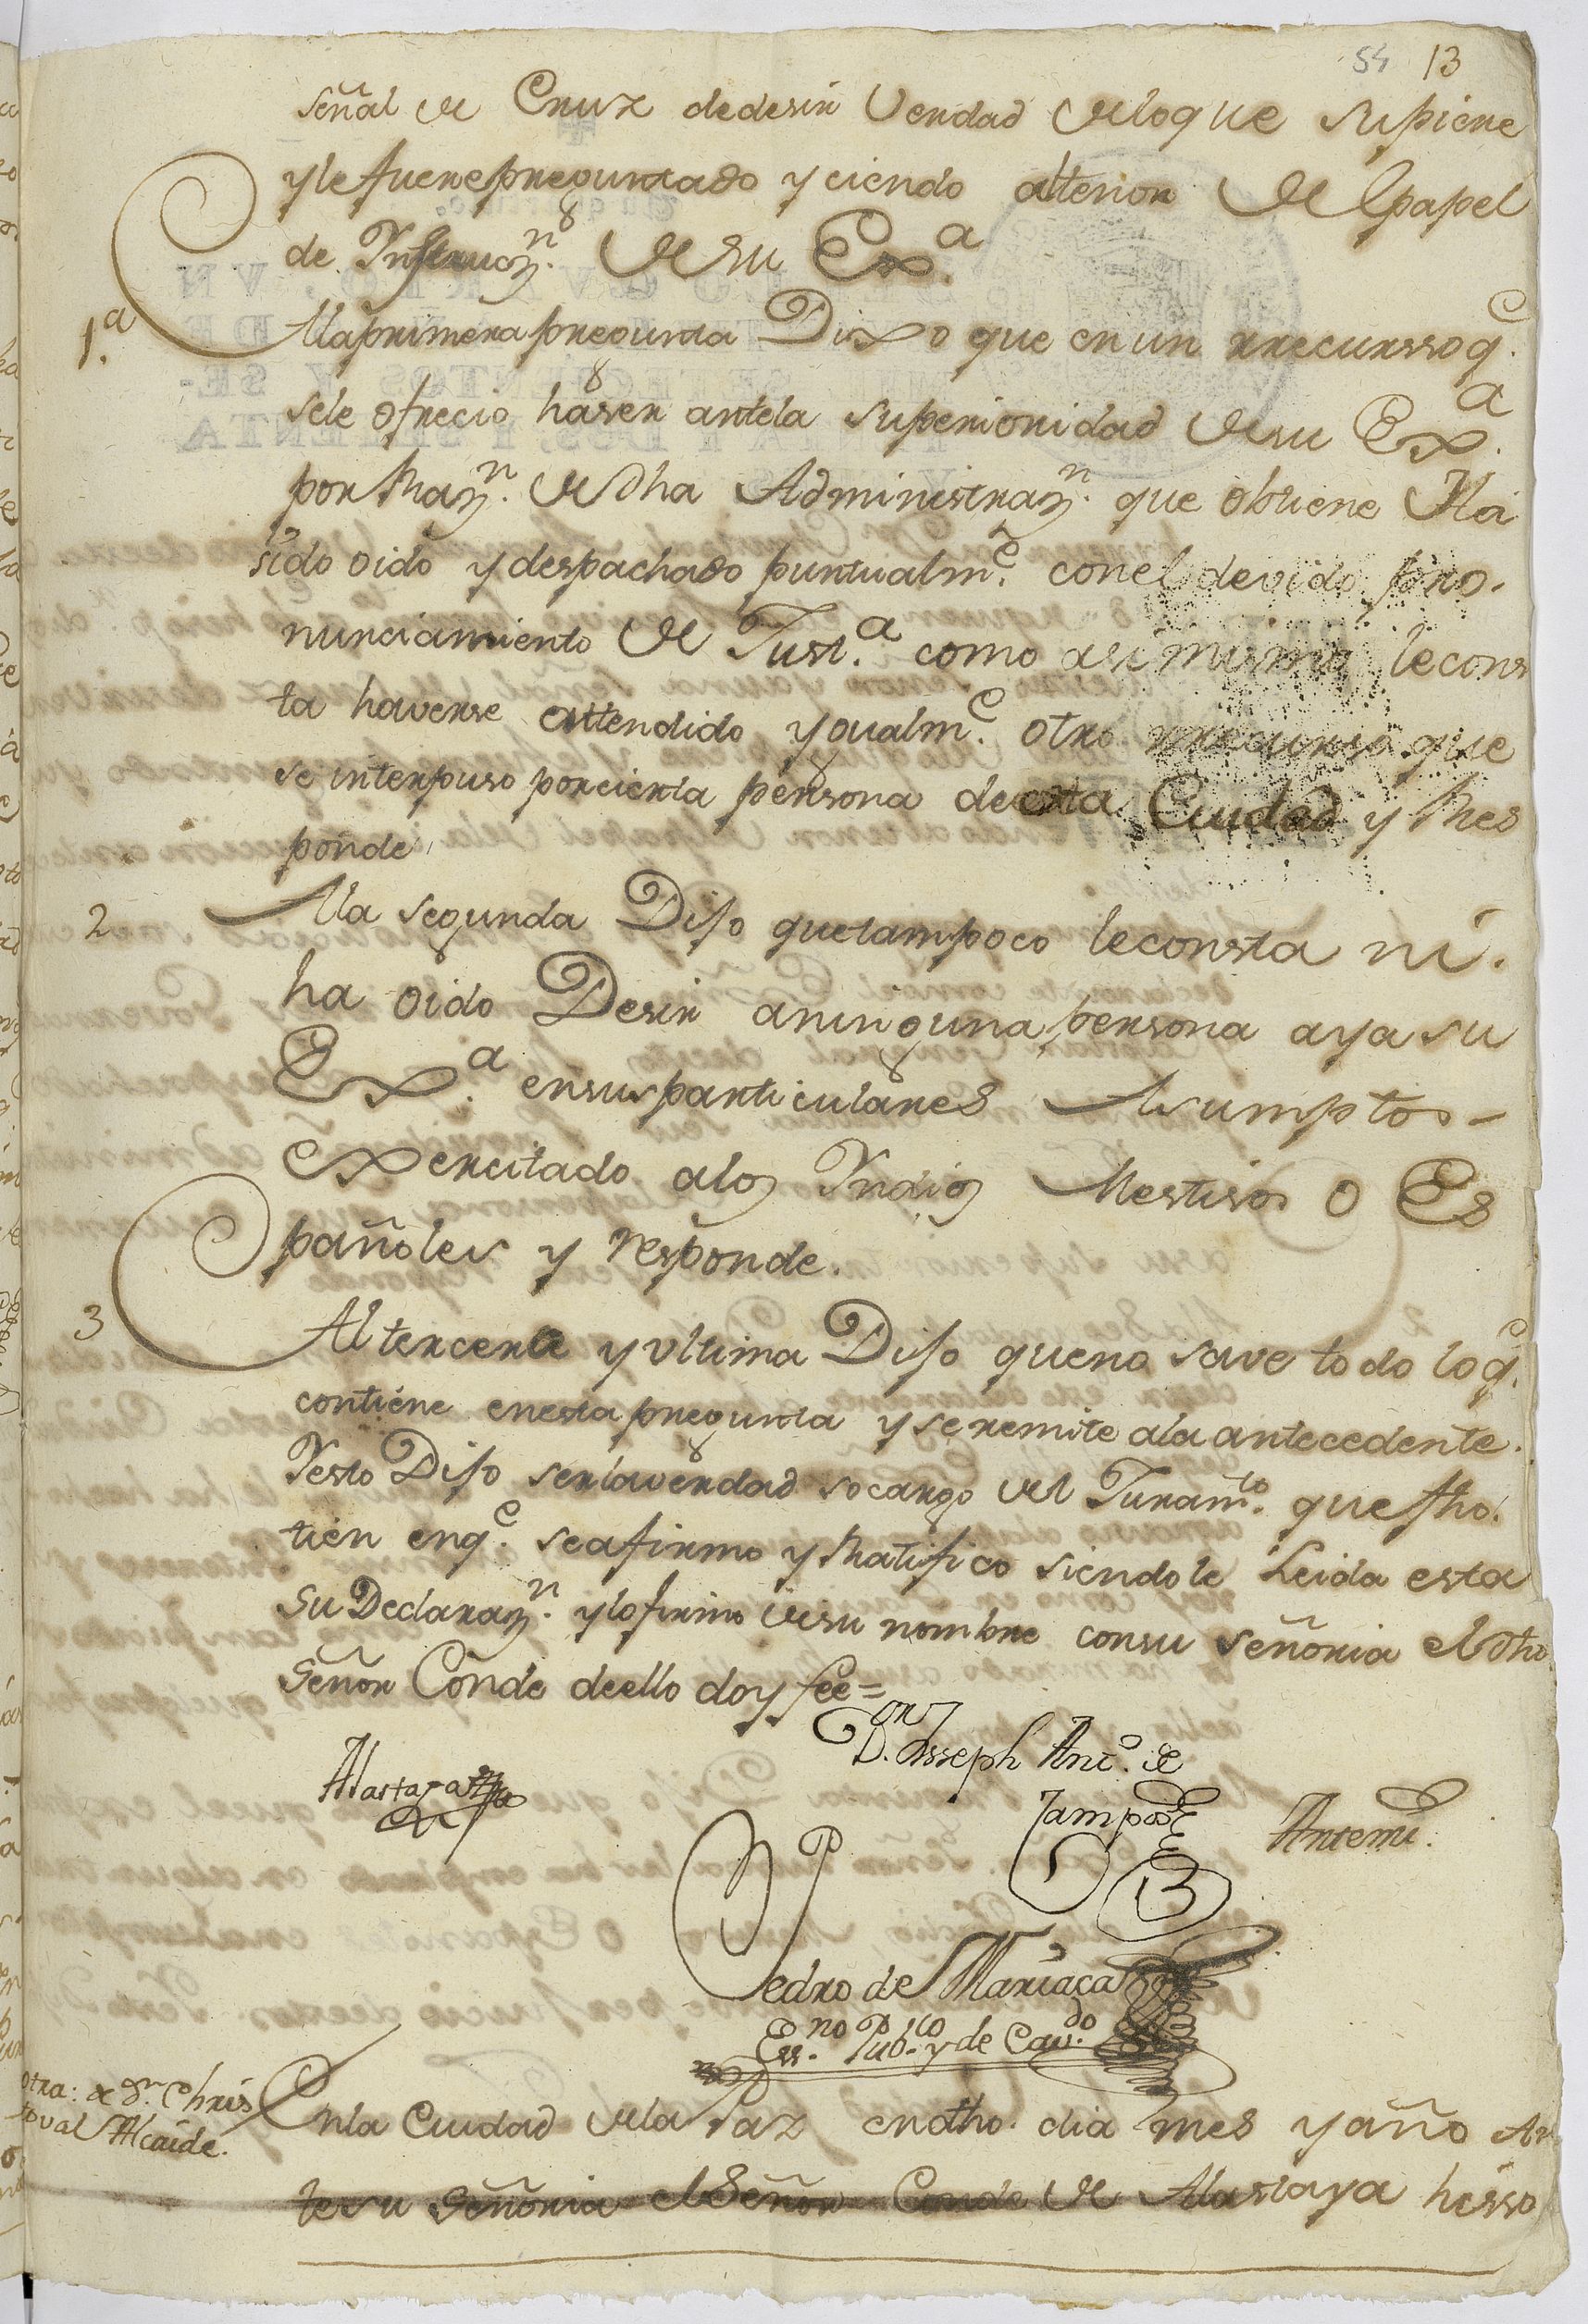 54 13
señal de Cruz de desir Verdad de lo que supiere
y le fuere preguntado y ciendo altenor del papel
de Ynstruczn. de su Exa.
1.a A la primera pregunta Dixo que en un rrecursso q.e
sele ofrecio haser antela superioridad de su Exa.
por Razn. de dha Administrazn. que obtiene Ha
sido oido y despachado puntualm.e con el devido pro-
nunciamiento de Just.a como asi mismo le cons
ta haverse attendido ygualm.e otro rrecurso que
se interpuso por cierta persona de esta Ciudad y Res
ponde
2 A la segunda Dijo que tampoco le consta ni
ha oido Desir a ninguna persona aya su
Exa. en sus particulares Asumptos
exercitado alos Yndios Mestisos o Es
pañoles y responde.
3 Al tercere y vltima Dijo que no save todo lo q.e
contiene en esta pregunta y se remite ala antecedente.
Y esto Dijo ser la verdad so cargo del Juram.to que fho.
tien en q.e se afirmo y Ratifico siendole Leida esta
su Declarazn. y lo firmo de su nombre con su señoria el dho
señor Conde de ello doy fee=
Alastaya
D.on Josseph Ant.o de
Campos
Antemi.
Pedro de Mariaca
Ess.no Pub.co y de Cav.do
otra: de Dn. Chris
toval Alcaide.
En la Ciudad de la Paz en dho. dia mes y año An
te su Señoria el Señor Conde de Alastaya hisso